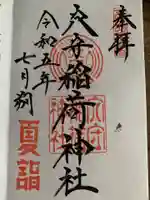 奉拝
穴守稲荷神社
令和五年
七月捌
夏詣